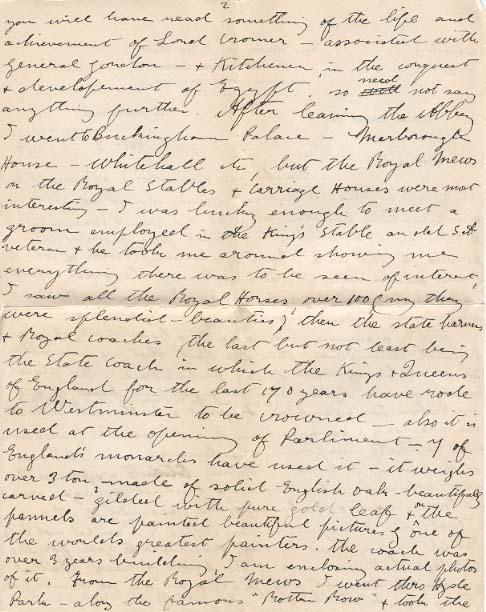 2
you will have read something of the life and
achievement of Lord Cromer - associated with
General Gordon - & Kitchener, in the conquest
& developement of Egypt. so need not say
anything further. After leaving the Abbey
I went to Buckingham Palace - Marborough
House - Whitehall etc, but the Royal Mews
or the Royal Stables & Carriage Houses were most
interesting - I was lucky enough to meet a
groom employed in the King's Stable an old
veteran & he took me around showing me
everything there was to be seen of interest,
I saw all the Royal Horses over 100 (my they
were splendid - beauties) then the state harness
& Royal coaches (the last but not least being
the State coach in which the Kings & Queens
of England for the last 170 years have rode
to Westminster to be crowned - also it is
used at the opening of Parliment - 7 of
England's monarchs have used it - it weighs
over 3 ton - made of solid English oak - beautifully
carved - gilded with pure gold leaf & on the
pannels are painted beautiful pictures by one of
the worlds greatest painters. the coach was
over 3 years building, I am enclosing actual photos
of it. From the Royal Mews I went thro Hyde
Park - along the famous "Rotten Row" & took the